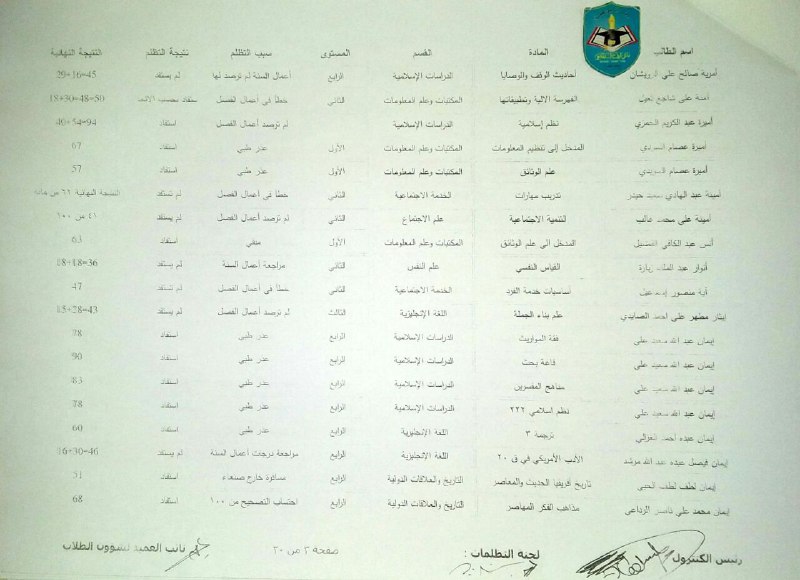 اسم الطالب المادة القسم المستوى سبب التظلم نتيجة التظلم النتيجة النهائية
أمرية صالح علي الرويشان أحاديث الوقف والوصايا الدراسات الإسلامية الرابع أعمال السنة لم ترصد لها لم يستفد 29+16=45
امنة علي شاجع الفهرسة الالية وتطبيقاتها المكتبات وعلم المعلومات الثاني خطأ في اعمال الفصل ستفاد بحسب 18+30=48=50
أميرة عبد الكريم العمري نظم إسلامية الدراسات الإسلامية لم ترصد أعمال الفصل استفاد 40+54=94
أميرة عصام المدخل إلى تنظيم المعلومات المكتبات وعلم المعلومات الأول عذر طبي استفاد 67
أميرة عصام علم الوثائق المكتبات وعلم المعلومات الأول عذر طبي استفاد 57
أمينة عبد الهادي حيدر تدريب مهارات الخدمة الاجتماعية الثاني خطأ في أعمال الفصل لم تستفد النتيجة النهائية ٦٢ من مائة
أمينة علي محمد غالب التنمية الاجتماعية علم الاجتماع الثاني لم ترصد أعمال الفصل لم يستفد ٤١ من ١٠٠
أنس عبد الكافي المدخل الى علم الوثائق المكتبات وعلم المعلومات الأول منفي استفاد 63
أنوار عبد الملك زيارة القياس النفسي علم النفس الثاني مراجعة أعمال السنة لم يستفد 18+18=36
آية منصور أساسيات خدمة الفرد الخدمة الاجتماعية الثاني خطأ في أعمال الفصل لم تستفد 47
إيثار مطهر علي احمد الصايدي علم بناء الجملة اللغة الإنجليزية الثالث لم ترصد أعمال الفصل لم يستفد 15+28=43
إيمان عبد الله سعيد علي فقه المواريث الدراسات الإسلامية الرابع عذر طبي استفاد 78
إيمان عبد الله سعيد علي قاعة بحث الدراسات الإسلامية الرابع عذر طبي استفاد 90
إيمان عبد الله سعيد علي مناهج المفسرين الدراسات الإسلامية الرابع عذر طبي استفاد 83
إيمان عبد الله سعيد علي نظم اسلامي ٢٢٢ الدراسات الإسلامية الرابع عذر طبي استفاد 78
إيمان عبده احمد الغزالي ترجمة ٣ اللغة الإنجليزية الرابع عذر طبي استفاد 60
إيمان فيصل عبده عبد الله مرشد الأدب الأمريكي في ق ٢٠ اللغة الإنجليزية الرابع مراجعة درجات أعمال السنة لم يستفد 16+30=46
إيمان لطف لطف تاريخ أفريقيا الحديث والمعاصر التاريخ والعلاقات الدولية الرابع مسافرة خارج صنعاء استفاد 51
إيمان محمد علي ناصر الرداعي مذاهب الفكر المعاصر التاريخ والعلاقات الدولية الرابع احتساب التصحيح من ١٠٠ استفاد 68
رئيس الكنترول لجنة التظلمات : صفحة ٢ من ٢٠ نائب العميد لشؤون الطلاب